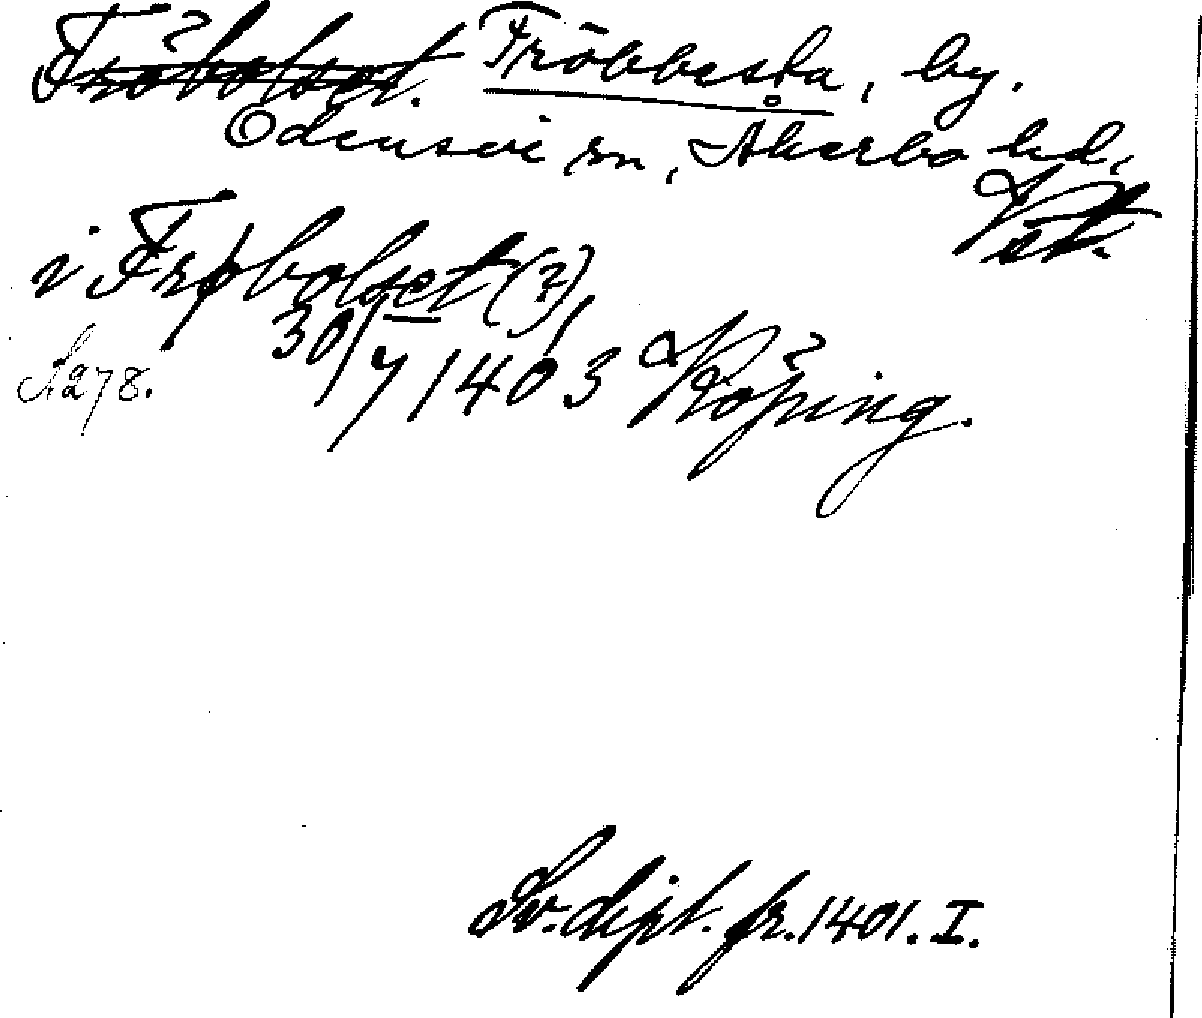 Fröbolset. Fröbbesta, by.
Odensvi sn, Åkerbo hd,
Vstm.
i Frøbolset (?),
30/7 1403 Köping.
A 278.
Sv. dipl. fr. 1401. I.